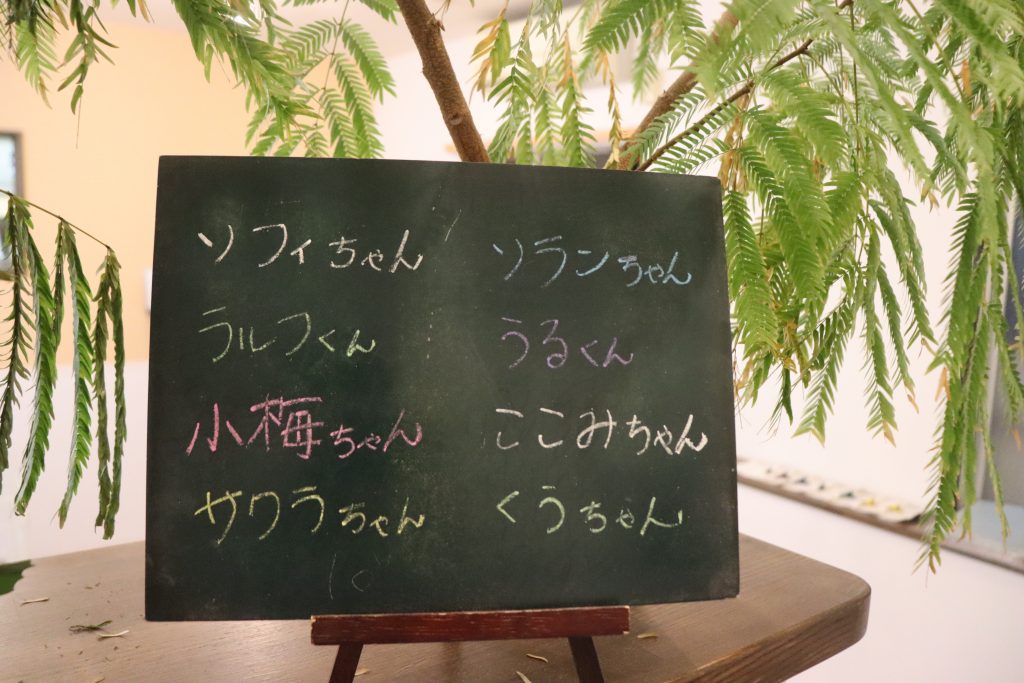 ソフィちゃん
ラルフくん
小梅ちゃん
サワラちゃん
ソランちゃん
うるくん
ここみちゃん
くうちゃん